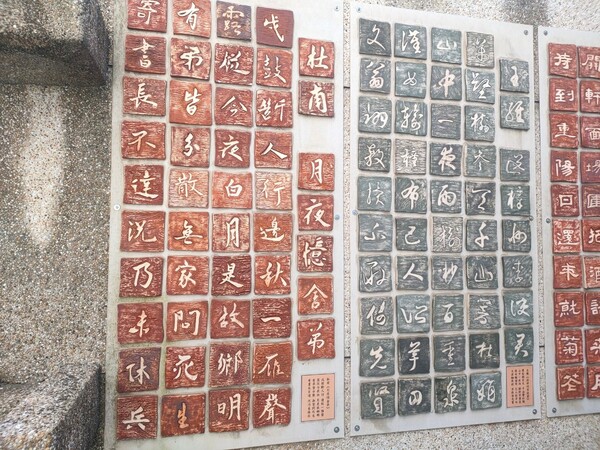 開軒面場圃把酒話桑麻
待到重陽日還來就菊花
王維 送梓州李使君
萬壑樹參天千山響杜鵑
山中一夜雨樹杪百重泉
漢女輸橦布巴人訟芋田
文翁翻教授不敢倚先賢
杜甫 月夜憶舍弟
戍鼓斷人行邊秋一雁聲
露從今夜白月是故鄉明
有弟皆分散無家問死生
寄書長不達況乃未休兵